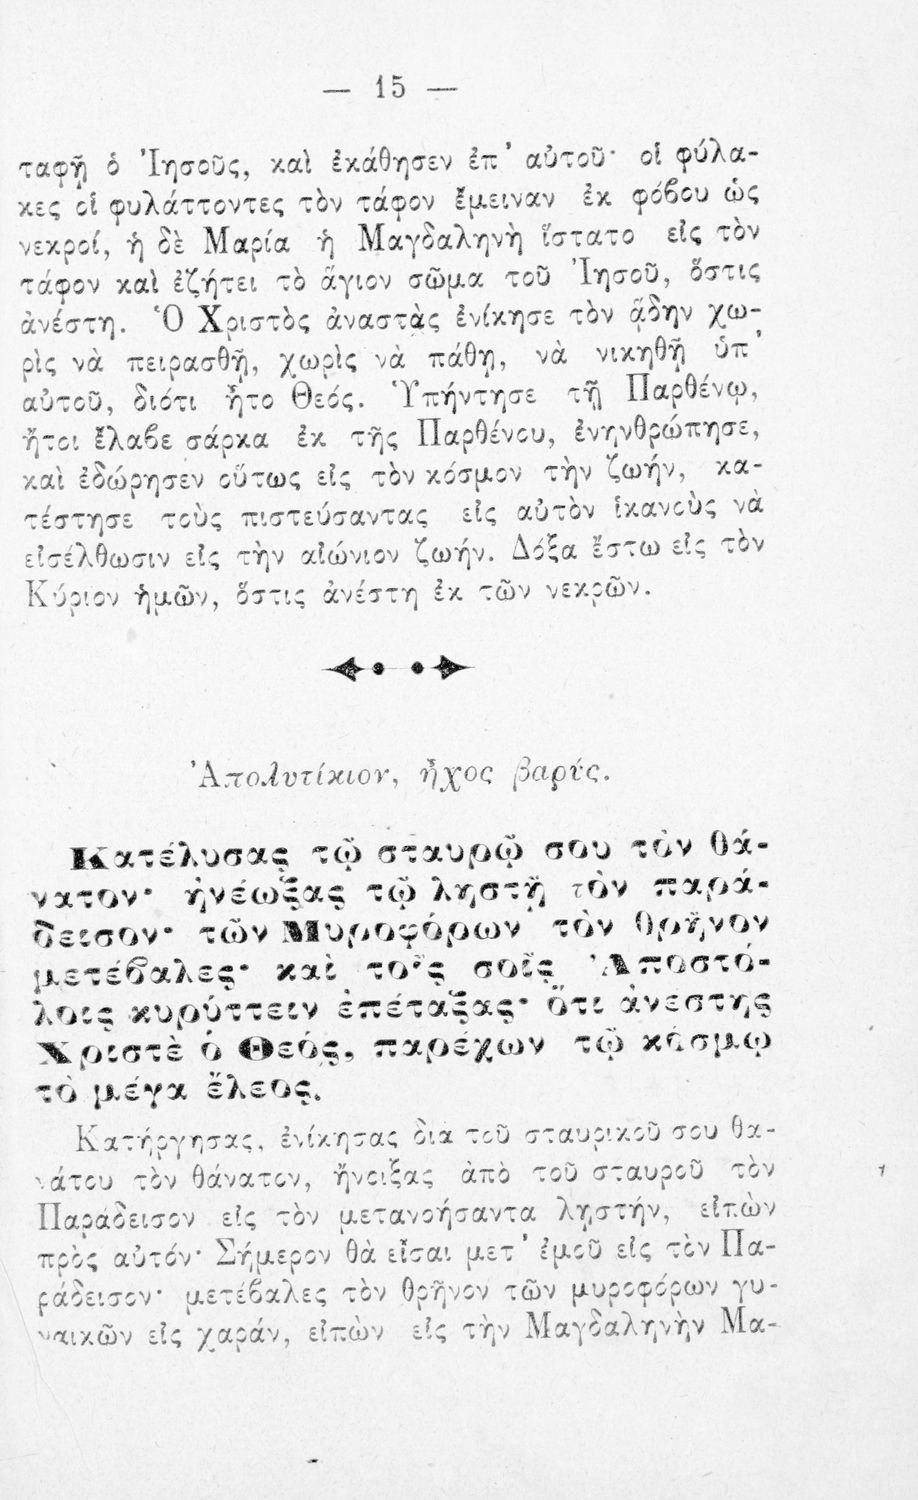 — 15 —
ταφῇ ὁ Ἰησοῦς, καὶ ἐκάθησεν ἐπ' αὐτοῦ· οἱ φύλα-
κες οἱ φυλάττοντες τὸν τάφον ἔμειναν ἐκ φόβου ὡς
νεκροί, ἡ δὲ Μαρία ἡ Μαγδαληνὴ ἵστατο εἰς τὸν
τάφον καὶ ἐζήτει τὸ ἅγιον σῶμα τοῦ Ἰησοῦ, ὅστις
ἀνέστη. Ὁ Χριστὸς ἀναστὰς ἐνίκησε τὸν ᾅδην χω-
ρὶς νὰ πειρασθῇ, χωρὶς νὰ πάθῃ, νὰ νικηθῇ ὑπ'
αὐτοῦ, διότι ἦτο Θεός. Ὑπήντησε τῇ Παρθένῳ,
ἤτοι ἔλαβε σάρκα ἐκ τῆς Παρθένου, ἐνηνθρώπησε,
καὶ ἐδώρησεν οὕτως εἰς τὸν κόσμον τὴν ζωήν, κα-
τέστησε τοὺς πιστεύσαντας εἰς αὐτὸν ἱκανοὺς νὰ
εἰσέλθωσιν εἰς τὴν αἰώνιον ζωήν. Δόξα ἔστω εἰς τὸν
Κύριον ἡμῶν, ὅστις ἀνέστη ἐκ τῶν νεκρῶν.
Ἀπολυτίκιον, ἦχος βαρύς.
Κατέλυσας τῷ σταυρῷ σου τὸν θά-
νατον· ἠνέωξας τῷ ληστῇ τὸν παρά-
δεισον· τῶν Μυροφόρων τὸν θρῆνον
μετέβαλες· καὶ τοῖς σοῖς Ἀποστό-
λοις κυρύττειν ἐπέταξας· ὅτι ἀνέστης
Χριστὲ ὁ Θεός, παρέχων τῷ κόσμῳ
τὸ μέγα ἔλεος.
Κατήργησας, ἐνίκησας δια τοῦ σταυρικοῦ σου θα-
νάτου τὸν θάνατον, ἤνοιξας ἀπὸ τοῦ σταυροῦ τὸν
Παράδεισον εἰς τὸν μετανοήσαντα λῃστήν, εἰπὼν
πρὸς αὐτόν· Σήμερον θὰ εἶσαι μετ' ἐμοῦ εἰς τὸν Πα-
ράδεισον· μετέβαλες τὸν θρῆνον τῶν μυροφόρων γυ-
ναικῶν εἰς χαράν, εἰπὼν εἰς τὴν Μαγδαληνὴν Μα-